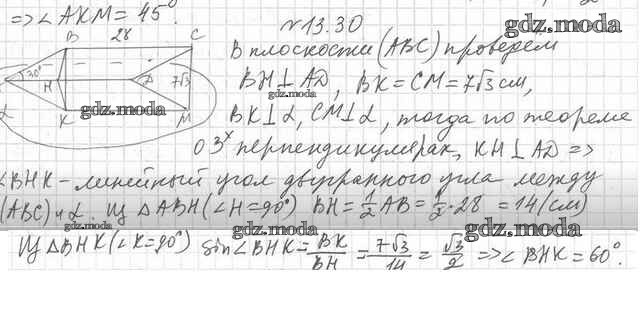 => ∠AKM = 45°.
№ 13.30
gdz.moda
B 28 C
В плоскости (ABC) проведем
30° H D 7√3
BH ⊥ AD, BK = CM = 7√3 см,
gdz.moda
α K M
gdz.moda
BK ⊥ α, CM ⊥ α, тогда по теореме
о 3ˣ перпендикулярах, KH ⊥ AD =>
∠BHK - линейный угол двугранного угла между
(ABC) и α. Из △ABH (∠H = 90°) BH = 1/2 AB = 1/2 · 28 = 14 (см)
gdz.moda
gdz.moda
Из △BHK (∠K = 90°) sin∠BHK = BK/BH = 7√3/14 = √3/2 => ∠BHK = 60°.
gdz.moda